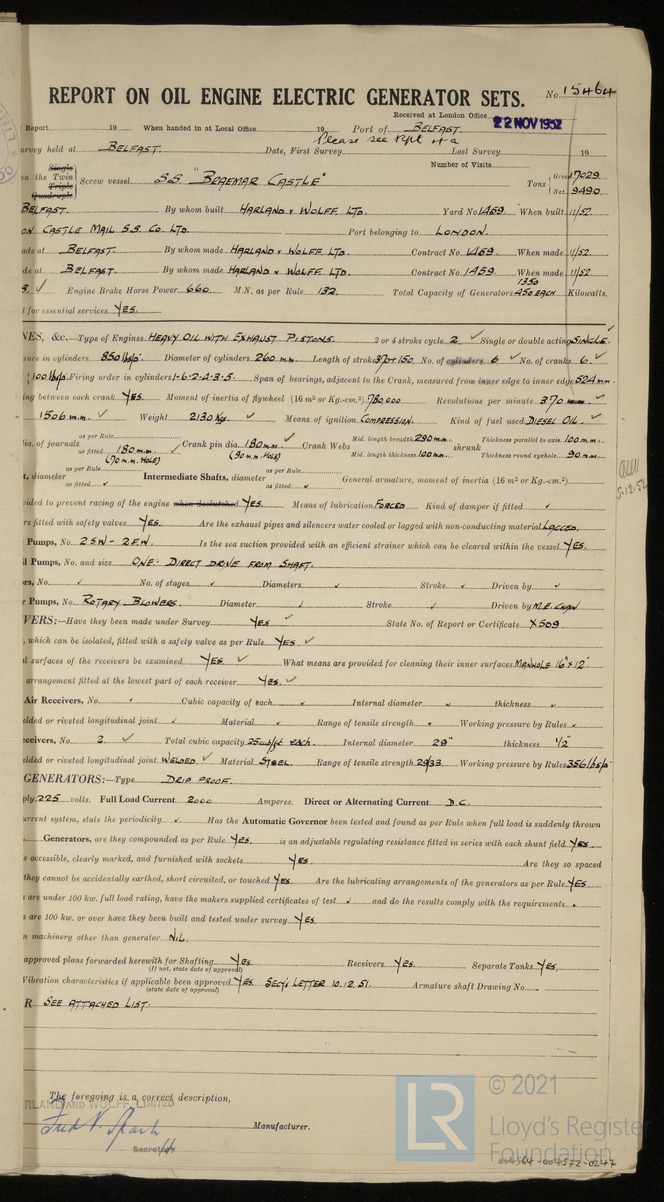 REPORT ON OIL ENGINE ELECTRIC GENERATOR SETS. No. 15464
Received at London Office 22 NOV 1952
Report 19 When handed in at Local Office 19 Port of BELFAST.
Please see Rpt 4a
urvey held at BELFAST. Date, First Survey Last Survey 19
Number of Visits
on the Single Twin Triple Quadruple Screw vessel S.S. "BRAEMAR CASTLE" Tons Gross 17029. Net 9490.
BELFAST. By whom built HARLAND & WOLFF LTD. Yard No 1459. When built 11/52.
ON CASTLE MAIL S.S. CO. LTD. Port belonging to LONDON.
ade at BELFAST. By whom made HARLAND & WOLFF LTD. Contract No. 1459 When made 11/52.
de at BELFAST. By whom made HARLAND & WOLFF LTD. Contract No. 1459 When made 11/52
Engine Brake Horse Power 660 M.N. as per Rule 132. Total Capacity of Generators 1350 450 EACH Kilowatts.
l for essential services YES.
NES, &c.—Type of Engines HEAVY OIL WITH EXHAUST PISTONS. 2 or 4 stroke cycle 2 ✓ Single or double acting SINGLE ✓
sure in cylinders 850 lb/□" Diameter of cylinders 260 mm. Length of stroke 370+150. No. of cylinders 6 ✓ No. of cranks 6. ✓
100 lb/□" Firing order in cylinders 1-6-2-4-3-5. Span of bearings, adjacent to the Crank, measured from inner edge to inner edge 524 mm.
ing between each crank YES. Moment of inertia of flywheel (16 m² or Kg.-cm.²) 780000 Revolutions per minute 370 ✓
1506 m.m. ✓ Weight 2130 Kgs. ✓ Means of ignition COMPRESSION. Kind of fuel used DIESEL OIL. ✓
ia. of journals as per Rule as fitted 180 m.m. (70 m.m. HOLE) ✓ Crank pin dia. 180 m.m. (90 m.m. HOLE) ✓ Crank Webs Mid. length breadth 290 m.m. Mid. length thickness 100 m.m. shrunk Thickness parallel to axis 100 m.m. Thickness round eyehole 90 m.m.
t, diameter as per Rule as fitted ✓ Intermediate Shafts, diameter as per Rule as fitted ✓ General armature, moment of inertia (16 m² or Kg.-cm.²)
vided to prevent racing of the engine when declutched YES. Means of lubrication FORCED Kind of damper if fitted ✓
rs fitted with safety valves YES. Are the exhaust pipes and silencers water cooled or lagged with non-conducting material LAGGED.
Pumps, No. 2 S.W - 2 F.W. Is the sea suction provided with an efficient strainer which can be cleared within the vessel YES.
il Pumps, No. and size ONE: DIRECT DRIVE FROM SHAFT.
rs, No. ✓ No. of stages ✓ Diameters ✓ Stroke ✓ Driven by ✓
r Pumps, No. ROTARY BLOWERS. Diameter ✓ Stroke ✓ Driven by M.E. CHAIN
VERS:—Have they been made under Survey YES ✓ State No. of Report or Certificate X509
, which can be isolated, fitted with a safety valve as per Rule YES ✓
l surfaces of the receivers be examined YES ✓ What means are provided for cleaning their inner surfaces MANHOLE 16" x 12"
arrangement fitted at the lowest part of each receiver YES. ✓
Air Receivers, No. ✓ Cubic capacity of each ✓ Internal diameter ✓ thickness ✓
elded or riveted longitudinal joint ✓ Material ✓ Range of tensile strength ✓ Working pressure by Rules ✓
eceivers, No. 2 ✓ Total cubic capacity 25 cub/ft each. Internal diameter 29" thickness 1/2
elded or riveted longitudinal joint WELDED. ✓ Material STEEL. Range of tensile strength 29/33. Working pressure by Rules 356 lbs/□"
GENERATORS:—Type DRIP PROOF.
ply 225 volts. Full Load Current 2000 Amperes. Direct or Alternating Current D.C.
urrent system, state the periodicity ✓ Has the Automatic Governor been tested and found as per Rule when full load is suddenly thrown
Generators, are they compounded as per Rule YES. is an adjustable regulating resistance fitted in series with each shunt field YES.
s accessible, clearly marked, and furnished with sockets YES. Are they so spaced
they cannot be accidentally earthed, short circuited, or touched YES. Are the lubricating arrangements of the generators as per Rule YES.
s are under 100 kw. full load rating, have the makers supplied certificates of test ✓ and do the results comply with the requirements
s are 100 kw. or over have they been built and tested under survey YES.
n machinery other than generator NIL.
approved plans forwarded herewith for Shafting YES. Receivers YES. Separate Tanks YES.
(If not, state date of approval)
Vibration characteristics if applicable been approved YES. SECY'S LETTER 10.12.51. Armature shaft Drawing No.
(state date of approval)
R SEE ATTACHED LIST.
The foregoing is a correct description,
RLAND AND WOLFF, LIMITED
Manufacturer.
Secretary
5.12.52
© 2021
LR
Lloyd's Register
Foundation
004564-004572-0247